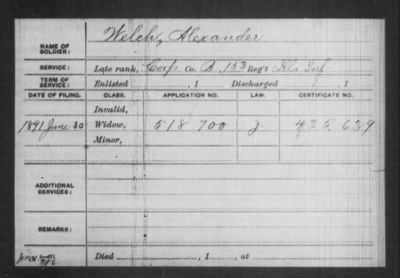 NAME OF SOLDIER: Welch, Alexander
SERVICE: Late rank, Corp Co. B, 153 Reg't Ills Inf.
TERM OF SERVICE: Enlisted , 1 Discharged , 1
DATE OF FILING. CLASS. APPLICATION NO. LAW. CERTIFICATE NO.
Invalid,
1891 June 30 Widow, 518 700 J 435 639
Minor,
ADDITIONAL SERVICES:
REMARKS:
Died , 1 , at